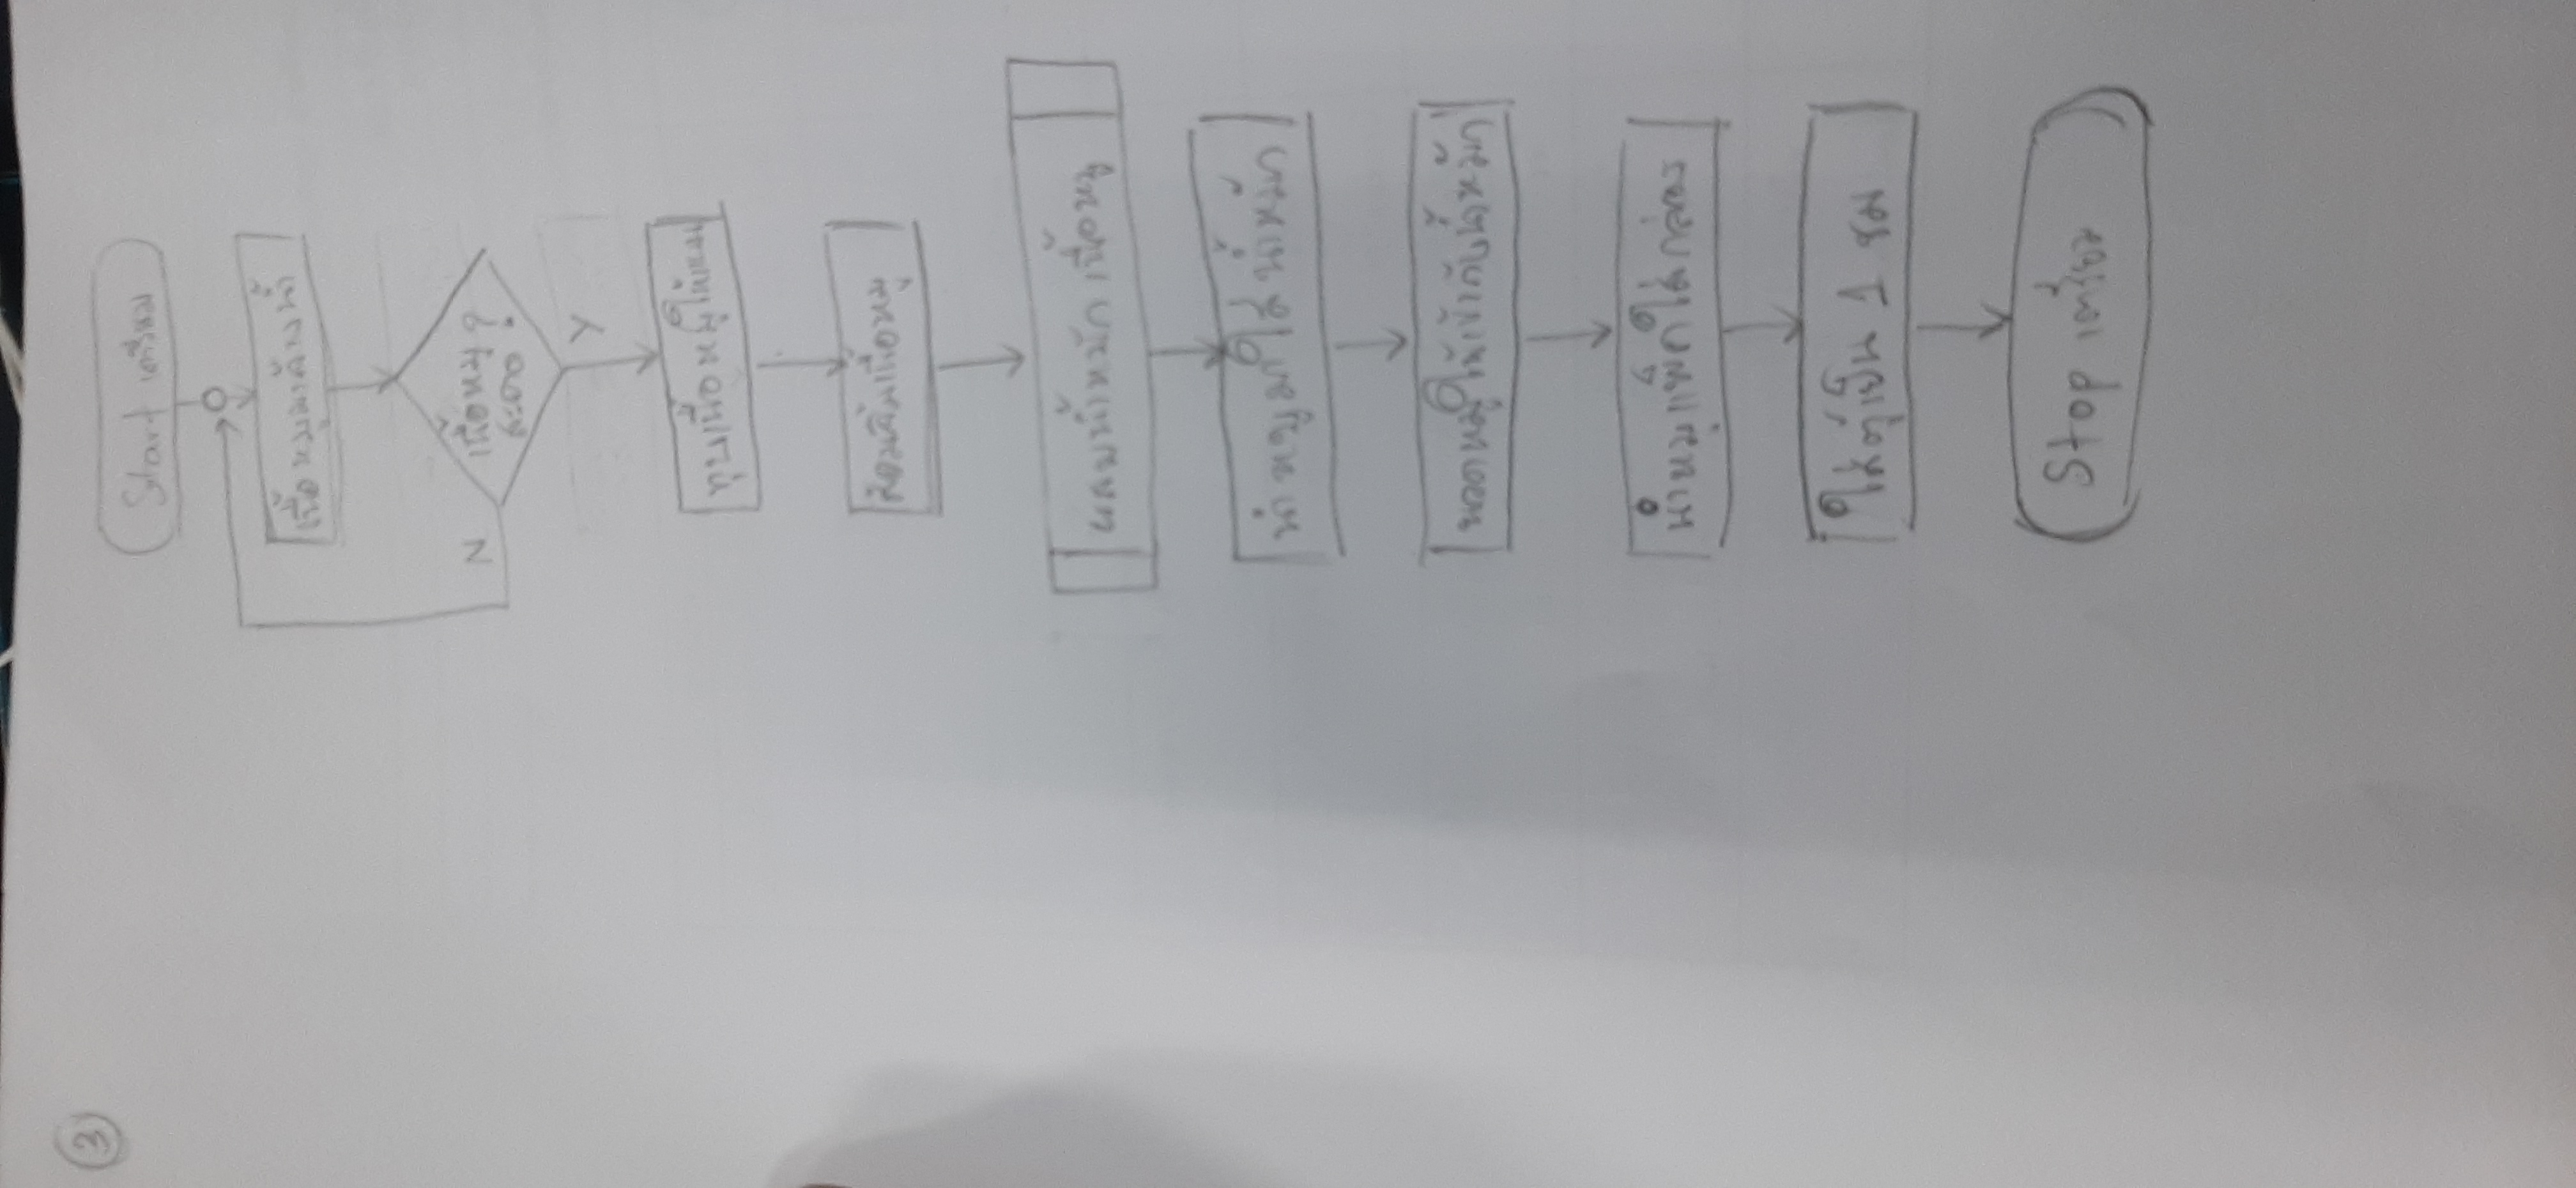 3
Start เตรียม
เนื้อหมูมาล้างน้ำ
N
เนื้อหมู ?
สะอาด
Y
ทุบเนื้อหมูให้แบน
ส้อมจิ้มเนื้อหมู
ผสมน้ำหมัก เนื้อหมู
นำหมูมาใส่น้ำหมัก
นวดหมูให้เข้ากับน้ำหมัก
นำหมูแพ็คใส่กล่อง
ใส่ตู้เย็น 1 ชม
Stop เตรียม